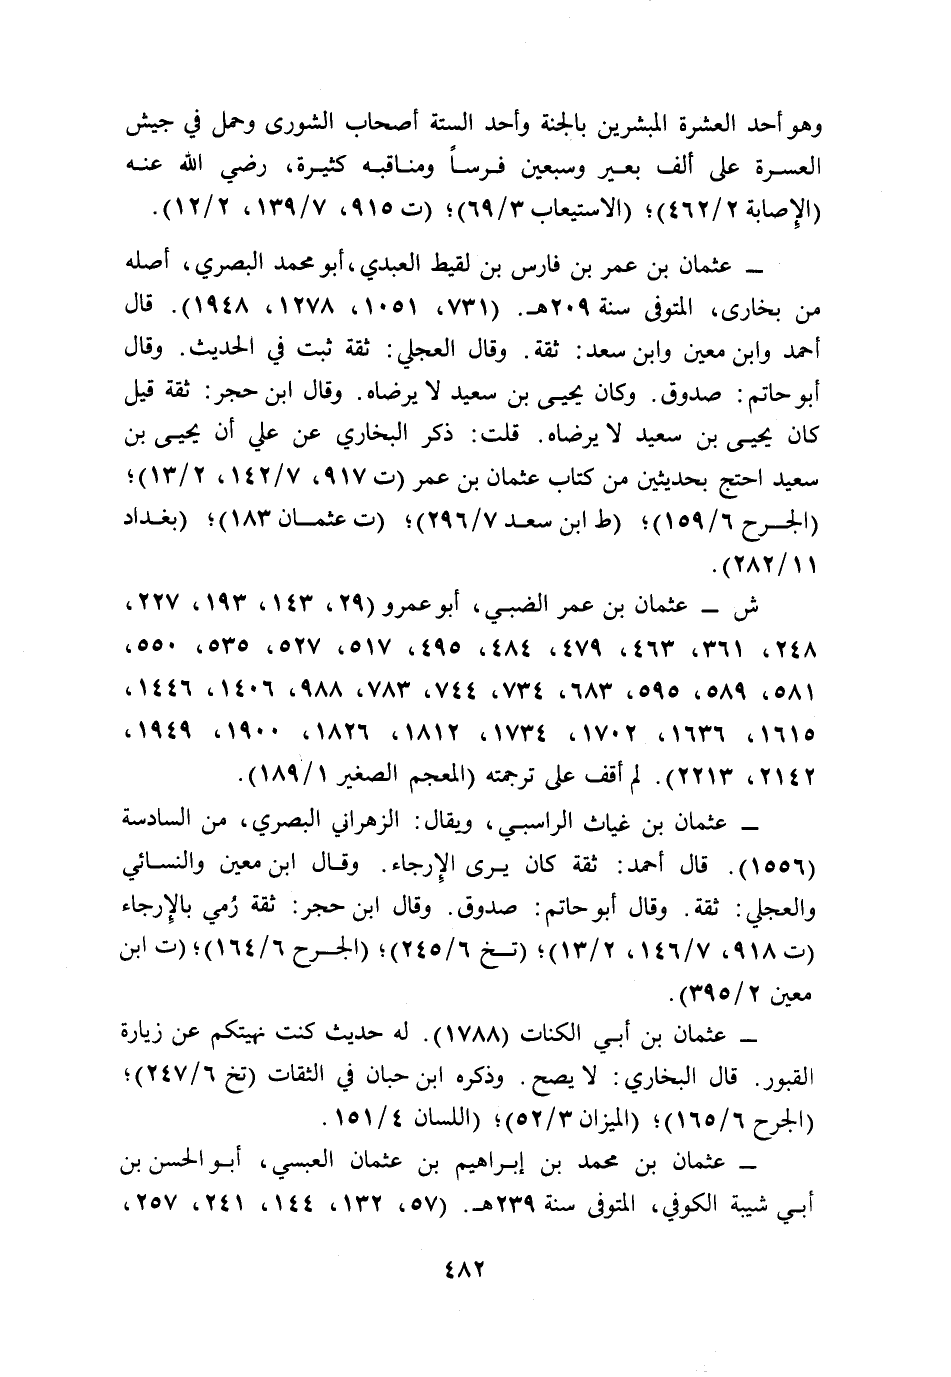 وهو أحد العشرة المبشرين بالجنة وأحد الستة أصحاب الشورى وحمل في جيش
العسرة على ألف بعير وسبعين فرساً ومناقبه كثيرة، رضي الله عنه
(الإصابة ٤٦٢/٢)؛ (الاستيعاب ٦٩/٣)؛ (ت ٩١٥، ١٣٩/٧، ١٢/٢).
ـ عثمان بن عمر بن فارس بن لقيط العبدي، أبو محمد البصري، أصله
من بخارى، المتوفى سنة ٢٠٩هـ. (٧٣١، ١٠٥١، ١٢٧٨، ١٩٤٨). قال
أحمد وابن معين وابن سعد: ثقة. وقال العجلي: ثقة ثبت في الحديث. وقال
أبو حاتم: صدوق. وكان يحيى بن سعيد لا يرضاه. وقال ابن حجر: ثقة قيل
كان يحيى بن سعيد لا يرضاه. قلت: ذكر البخاري عن علي أن يحيى بن
سعيد احتج بحديثين من كتاب عثمان بن عمر (ت ٩١٧، ١٤٢/٧، ١٣/٢)؛
(الجرح ١٥٩/٦)؛ (ط ابن سعد ٢٩٦/٧)؛ (ت عثمان ١٨٣)؛ (بغداد
٢٨٢/١١).
ش ـ عثمان بن عمر الضبي، أبو عمرو (٢٩، ١٤٣، ١٩٣، ٢٢٧،
٢٤٨، ٣٦١، ٤٦٣، ٤٧٩، ٤٨٤، ٤٩٥، ٥١٧، ٥٢٧، ٥٣٥، ٥٥٠،
٥٨١، ٥٨٩، ٥٩٥، ٦٨٣، ٧٣٤، ٧٤٤، ٧٨٣، ٩٨٨، ١٤٠٦، ١٤٤٦،
١٦١٥، ١٦٣٦، ١٧٠٢، ١٧٣٤، ١٨١٢، ١٨٢٦، ١٩٠٠، ١٩٤٩،
٢١٤٢، ٢٢١٣). لم أقف على ترجمته (المعجم الصغير ١٨٩/١).
ـ عثمان بن غياث الراسبي، ويقال: الزهراني البصري، من السادسة
(١٥٥٦). قال أحمد: ثقة كان يرى الإرجاء. وقال ابن معين والنسائي
والعجلي: ثقة. وقال أبو حاتم: صدوق. وقال ابن حجر: ثقة رُمي بالإرجاء
(ت ٩١٨، ١٤٦/٧، ١٣/٢)؛ (تخ ٢٤٥/٦)؛ (الجرح ١٦٤/٦)؛ (ت ابن
معين ٣٩٥/٢).
ـ عثمان بن أبي الكنات (١٧٨٨). له حديث كنت نهيتكم عن زيارة
القبور. قال البخاري: لا يصح. وذكره ابن حبان في الثقات (تخ ٢٤٧/٦)؛
(الجرح ١٦٥/٦)؛ (الميزان ٥٢/٣)؛ (اللسان ١٥١/٤.
ـ عثمان بن محمد بن إبراهيم بن عثمان العبسي، أبو الحسن بن
أبي شيبة الكوفي، المتوفى سنة ٢٣٩هـ. (٥٧، ١٣٢، ١٤٤، ٢٤١، ٢٥٧،
٤٨٢